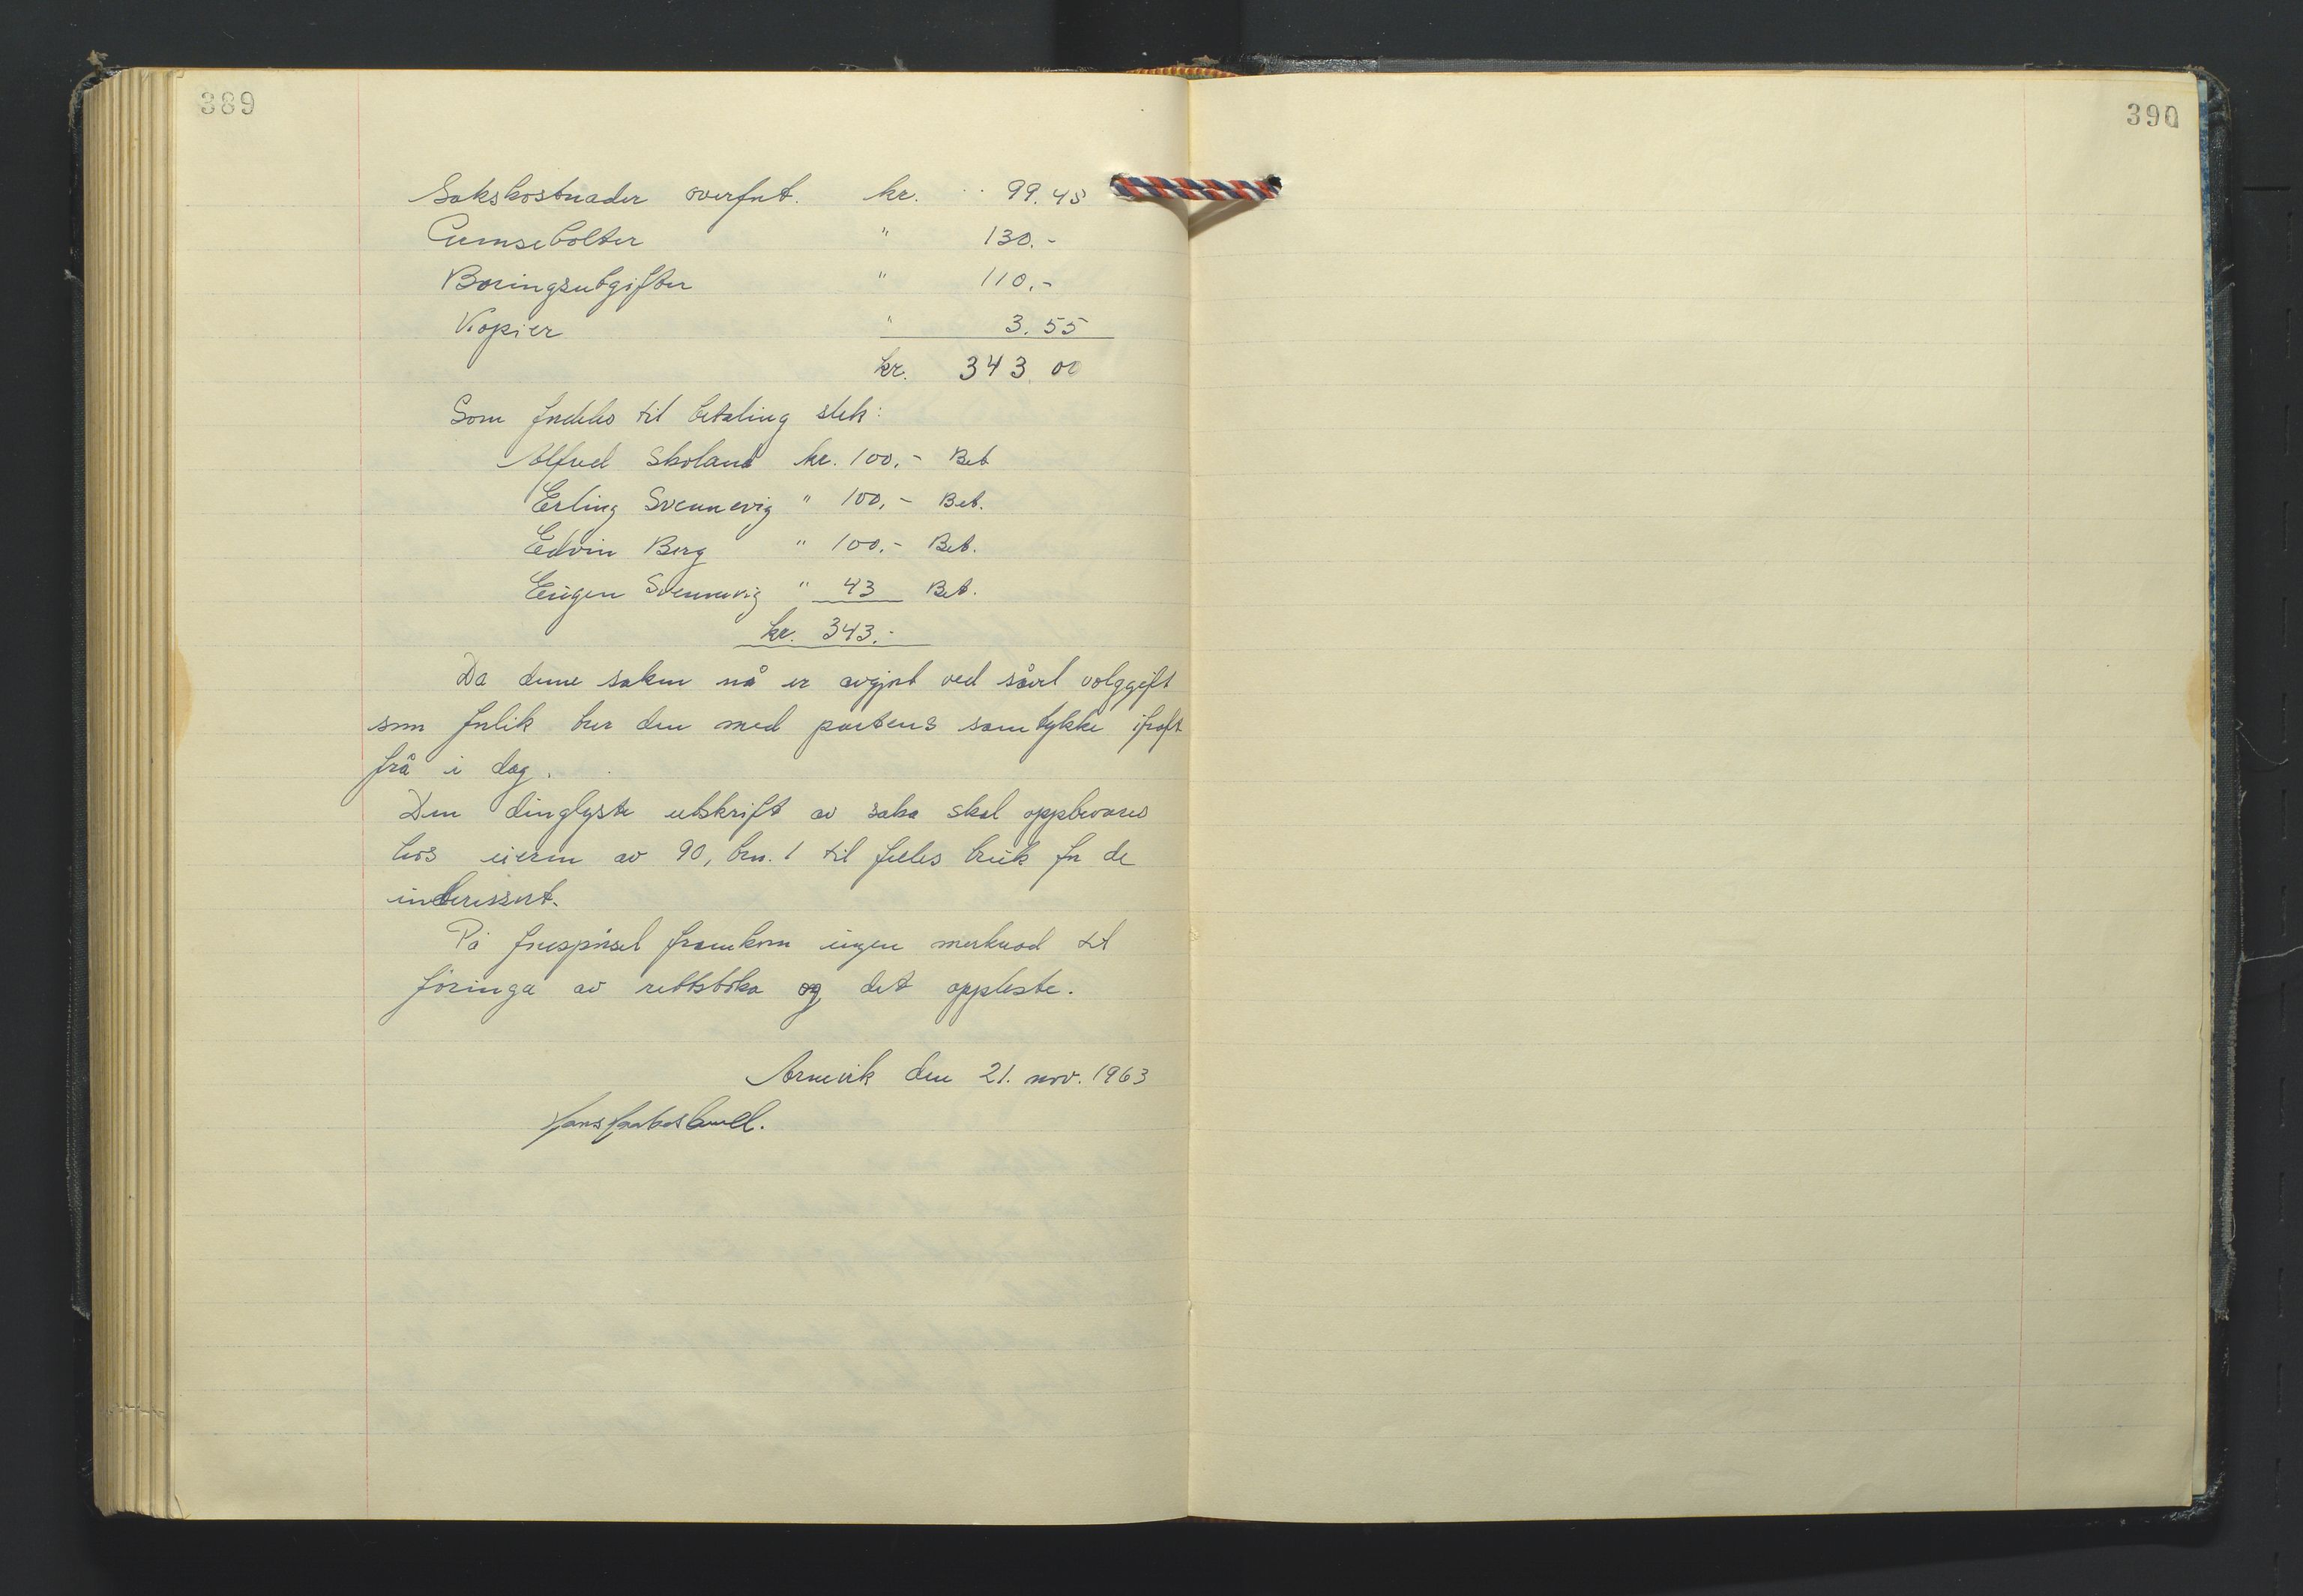 389
390
Sakskostnader overført. kr. 99.45
Grensebolter " 130.-
Boringsutgifter " 110.-
Kopier " 3.55
kr. 343.00
Som fordeles til betaling slik:
Alfred Skoland kr. 100.- Bet
Erling Svennevig " 100.- Bet.
Edvin Berg " 100.- Bet.
Eugen Svennevig " 43 Bet.
kr. 343.-
Da denne saken nå er avgjort ved såvel volggift
som forlik trer den med partens samtykke i kraft
frå i dag.
Den tinglyste utskrift av saka skal oppbevares
hos eieren av 90, brn. 1 til felles bruk for de
interessert.
På forespørsel framkom ingen merknad til
føringa av rettsboka og det oppleste.
Arnevik den 21. nov. 1963